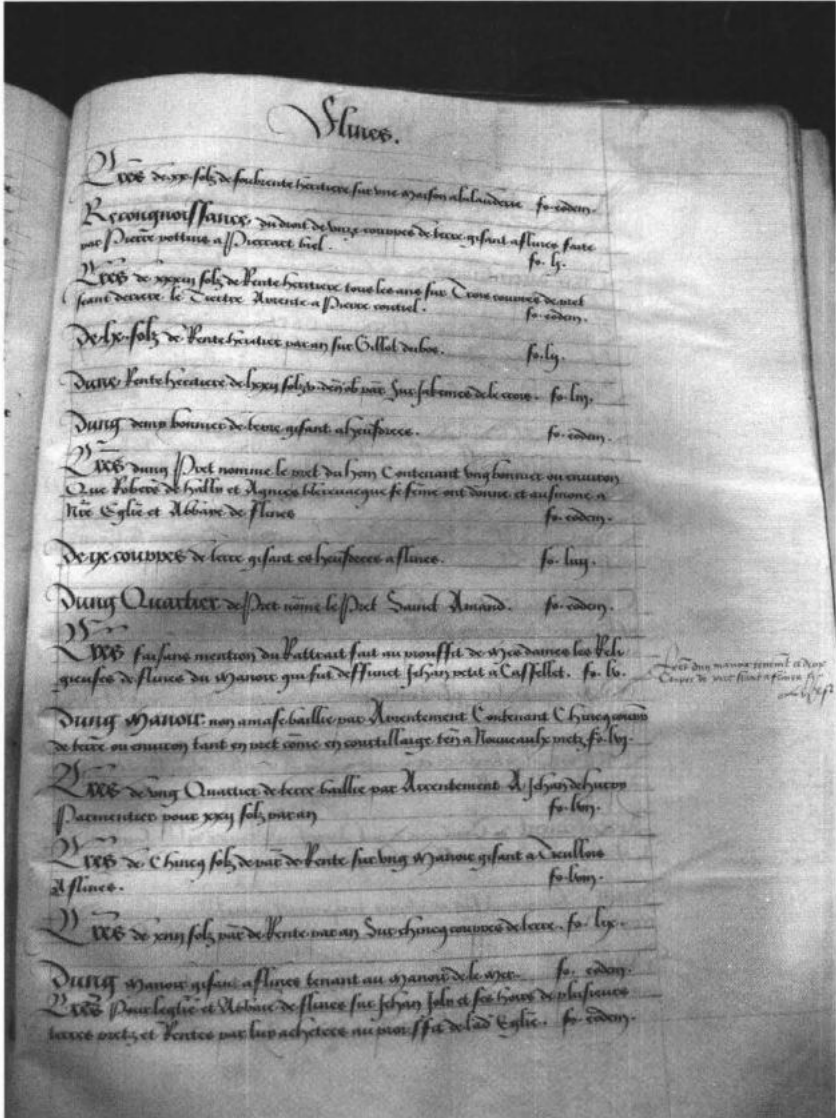 Flines.
Lres de xx solz de soubrente heritiere sur une maison abalanderie fo. eodem.
Recongnoissance du droit de unze couppes de terre gisant a flines faite
par Pierre pottine a Pierrart biel. fo. lj.
Lres de xxxiij solz de Rente heritiere tous les ans sur Trois couppes de pret
seant derriere le Tertre Arrente a Pierre coutiel. fo. eodem.
De lx solz de Rente heritier par an sur Gillot dubos. fo. lij.
Dune Rente heritiere de lxxij solz v. den ob par sur Jakemes de le crois. fo. liij.
Dung demy bonnier de terre gisant a fo. eodem.
Lres dung Pret nomme le pret du hem Contenant ung bonnier ou environ
Que Robert de hailly et Agnies se feme ont donne et aulmone a
Nre Eglie et Abbaye de flines fo. eodem.
De ix couppes de terre gisant es a flines. fo. liiij.
Dung Quartier de Pret nome le Pret Sainct Amand. fo. eodem.
Lres faisans mention du Rattrait fait au prouffit de Mesdames les Reli
gieuses de flines du Manoir qui fut deffunct Jehan petit a Cassellet. fo. lv.
Lres dun manoir contenant
Couppes de pret seant a flines
Dung Manoir non amase baillie par Arrentement Contenant Chincq couppes
de terre ou environ tant en pret come en courtillaige ten a Nouveaulx pretz fo. lvj.
Lres de ung Quartier de terre baillie par Arrentement A Jehan de
Parmentier pour xxij solz par an fo. lvij.
Lres de Chincq solz de par de Rente sur ung Manoir gisant a
A flines. fo. lviij.
Lres de xiiij solz par de Rente par an Sur chincq couppes de terre. fo. lix.
Dung Manoir gisant a flines tenant au Manoir de le Mer. fo. eodem.
Lres Pour leglie et Abbaye de flines sur Jehan Joly et ses hoirs de plusieurs
terres pretz et Rentes par luy achetees au prouffit de lad Eglie. fo. eodem.